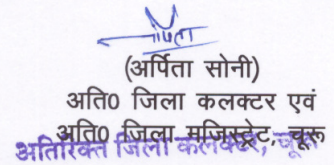 (अर्पिता सोनी)
अति0 जिला कलक्टर एवं
अति0 जिला मजिस्ट्रेट, चूरू
अतिरिक्त जिला कलक्टर, चूरू